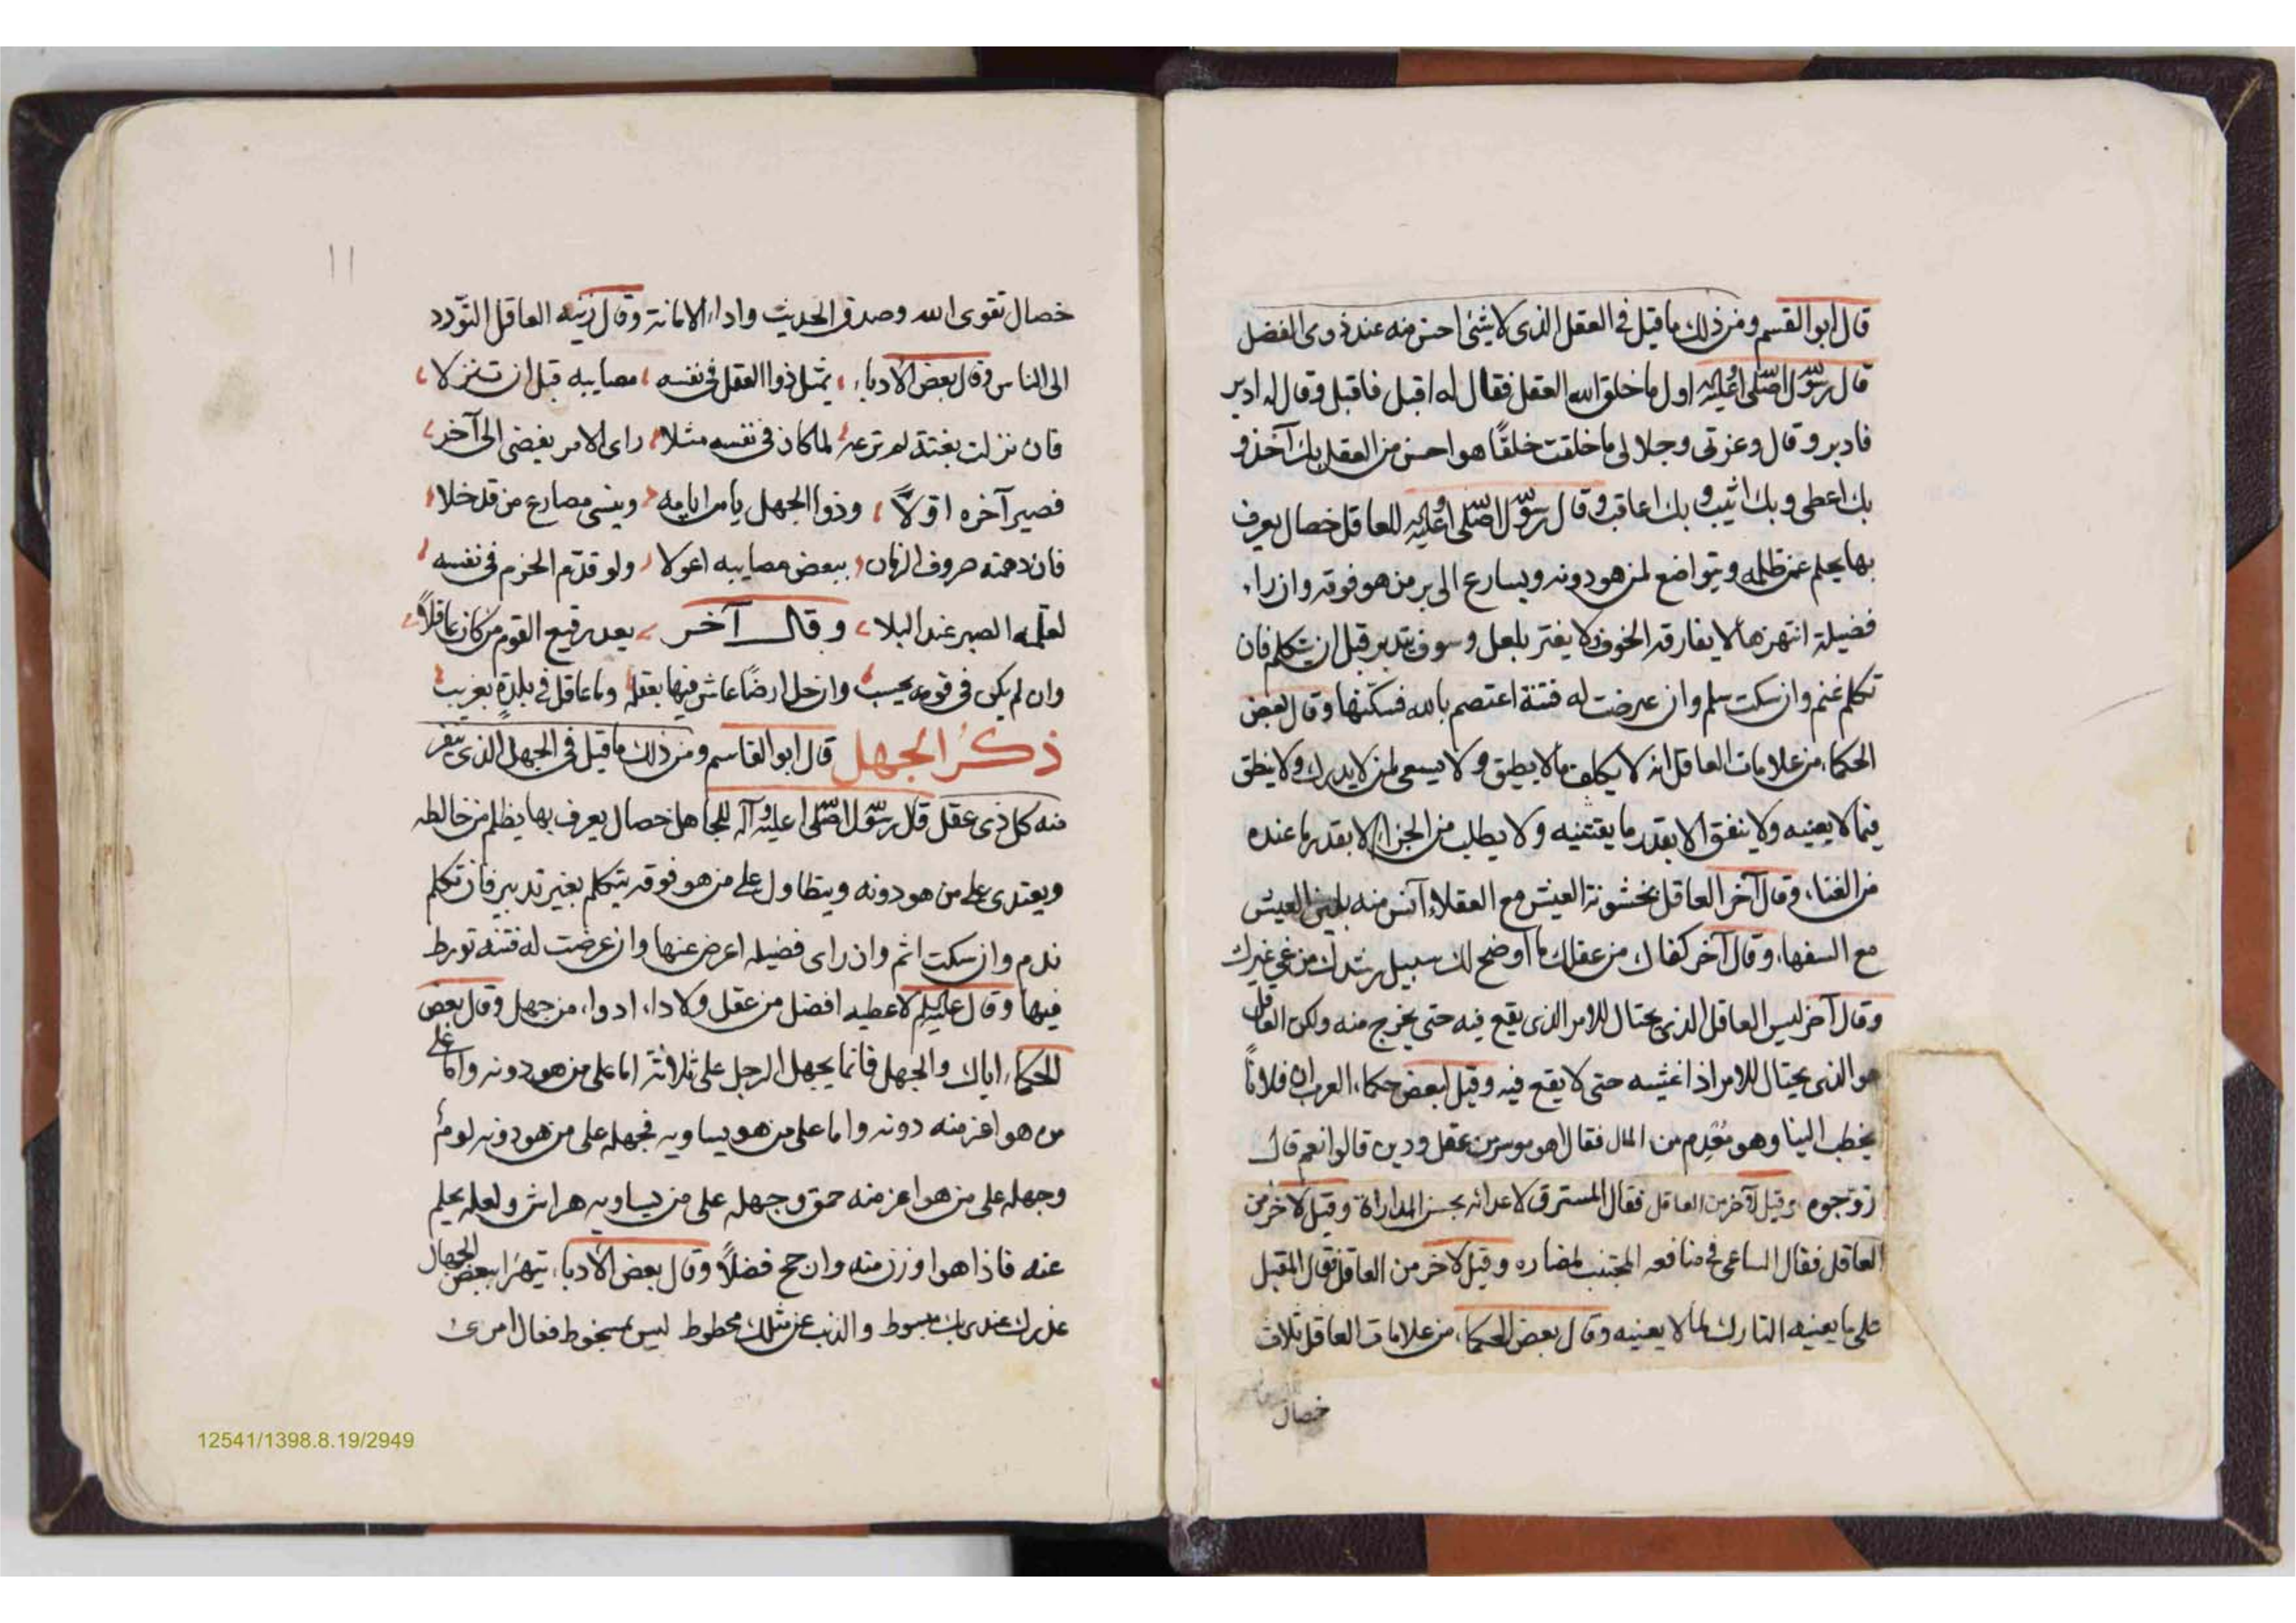 قال ابو القسم ومن ذلك ما قيل في العقل الذى لا شئ احسن منه عند ذوى الفضل
قال رسول الله صلى الله عليه واله اول ما خلق الله العقل فقال له اقبل فاقبل وقال له ادبر
فادبر وقال وعزتى وجلالى ما خلقت خلقًا هو احسن من العقل بك آخذ و
بك اعطى وبك اثيب وبك اعاقب وقال رسول الله صلى الله عليه واله للعاقل خصال يعرف
بها يحلم عمن ظلمه ويتواضع لمن هو دونه ويسارع الى بر من هو فوقه وان راء
فضيلة انتهزها لا يفارقه الخوف ولا يفتر بلعل وسوف يتدبر قبل ان يتكلم فان
تكلم غنم وان سكت سلم وان عرضت له فتنة اعتصم بالله فسكنها وقال بعض
الحكماء من علامات العاقل انه لا يكلف ما لا يطيق ولا يسعى لمن لا يدرك ولا ينطق
فيما لا يعنيه ولا ينفق الا بقدر ما يقتنيه ولا يطلب من الجزاء الا بقدر ما عنده
من الغناء وقال آخر العاقل بخشونة العيش مع العقلاء آنس منه بلين العيش
مع السفهاء وقال آخر كفاك من عقلك ما اوضح لك سبيل رشدك من غي غيرك
وقال آخر ليس العاقل الذى يحتال للامر الذى يقع فيه حتى يخرج منه ولكن العاقل
هو الذى يحتال للامر اذا غشيه حتى لا يقع فيه وقيل لبعض حكماء العرب ان فلانًا
يخطب الينا وهو مُعْدِم من المال فقال اهو موسر من عقل ودين قالوا نعم قال
زوّجوه وقيل لآخر من العاقل فقال المسترق لاعدائه بحسن المداراة وقيل لاخر من
العاقل فقال الساعى في منافعه المجتنب لمضاره وقيل لاخر من العاقل فقال المقبل
على ما يعنيه التارك لما لا يعنيه وقال بعض الحكماء من علامات العاقل ثلاث
خصال
١١
خصال تقوى الله وصدق الحديث واداء الامانة وقال زينة العاقل التوّدد
الى الناس وقال بعض الادباء يمثل ذوا العقل في نفسه مصايبه قبل ان تنزلا
فان نزلت بغتة لم ترعه لما كان في نفسه مثلا راى الامر يفضى الى آخر
فصير آخره اوّلًا وذوا الجهل يامن ايامه وينسى مصارع من قد خلا
فان دهمته صروف الزمان ببعض مصايبه اعولا ولو قدّم الحزم في نفسه
لعلّمه الصبر عند البلا وقال آخر يعد رفيع القوم من كان عاقلًا
وان لم يكن في قومه بحسيب وان حل ارضًا عاش فيها بعقله وما عاقل في بلدةٍ بغريب
ذكر الجهل قال ابو القاسم ومن ذلك ما قيل في الجهل الذى ينفر
منه كل ذى عقل قال رسول الله صلى الله عليه وآله للجاهل خصال يعرف بها يظلم من خالطه
ويعتدى على من هو دونه ويتطاول على من هو فوقه يتكلم بغير تدبير فان تكلم
ندم وان سكت اثم وان راى فضيلة اعرض عنها وان عرضت له فتنة تورط
فيها وقال عليه السلم لا عطيه افضل من عقل ولا داء ادواء من جهل وقال بعض
الحكماء اياك والجهل فانما يجهل الرجل على ثلاثة اما على من هو دونه واما على
من هو اعز منه دونه واما على من هو يساويه فجهله على من هو دونه لومٌ
وجهله على من هو اعز منه حمق وجهله على من يساويه هراش ولعله يحلم
عنه فاذا هو اوزن منه وارجح فضلًا وقال بعض الادباء يتهزا ببعض الجهال
عذرك عندى بك مبسوط والذنب عن مثلك محطوط ليس بمسخوط فعال امرئ
12541/1398.8.19/2949